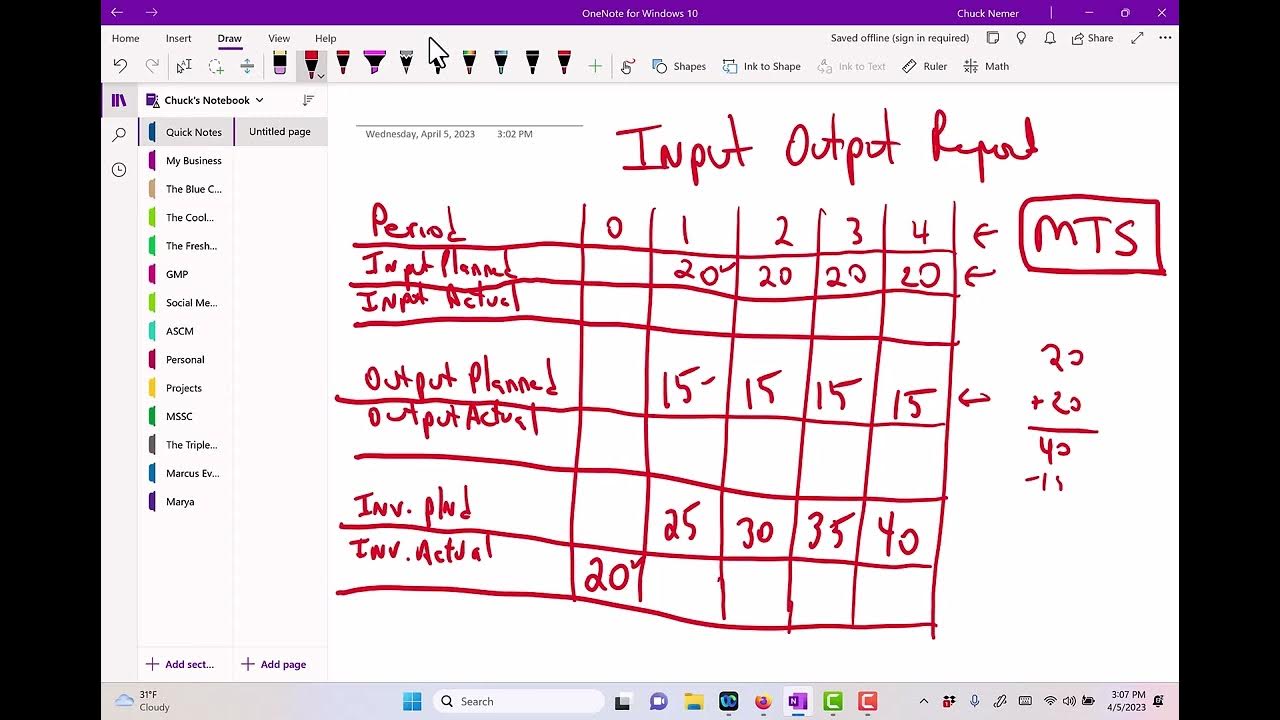 OneNote for Windows 10
Chuck Nemer
Home Insert Draw View Help
Saved offline (sign in required)
Share
Shapes
Ink to Shape
Ink to Text
Ruler
Math
Chuck's Notebook
Quick Notes
My Business
The Blue C...
The Cool...
The Fresh...
GMP
Social Me...
ASCM
Personal
Projects
MSSC
The Triple...
Marcus Ev...
Marya
Add sect...
Untitled page
Add page
Wednesday, April 5, 2023 3:02 PM
Input Output Report
Period 0 1 2 3 4 ←
MTS
Input Planned 20✓ 20 20 20 ←
Input Actual
Output Planned 15✓ 15 15 15 ←
Output Actual
Inv. plnd 25 30 35 40
Inv. Actual 20✓
20
+20
40
31°F
Cloudy
Search
3:07 PM
4/5/2023